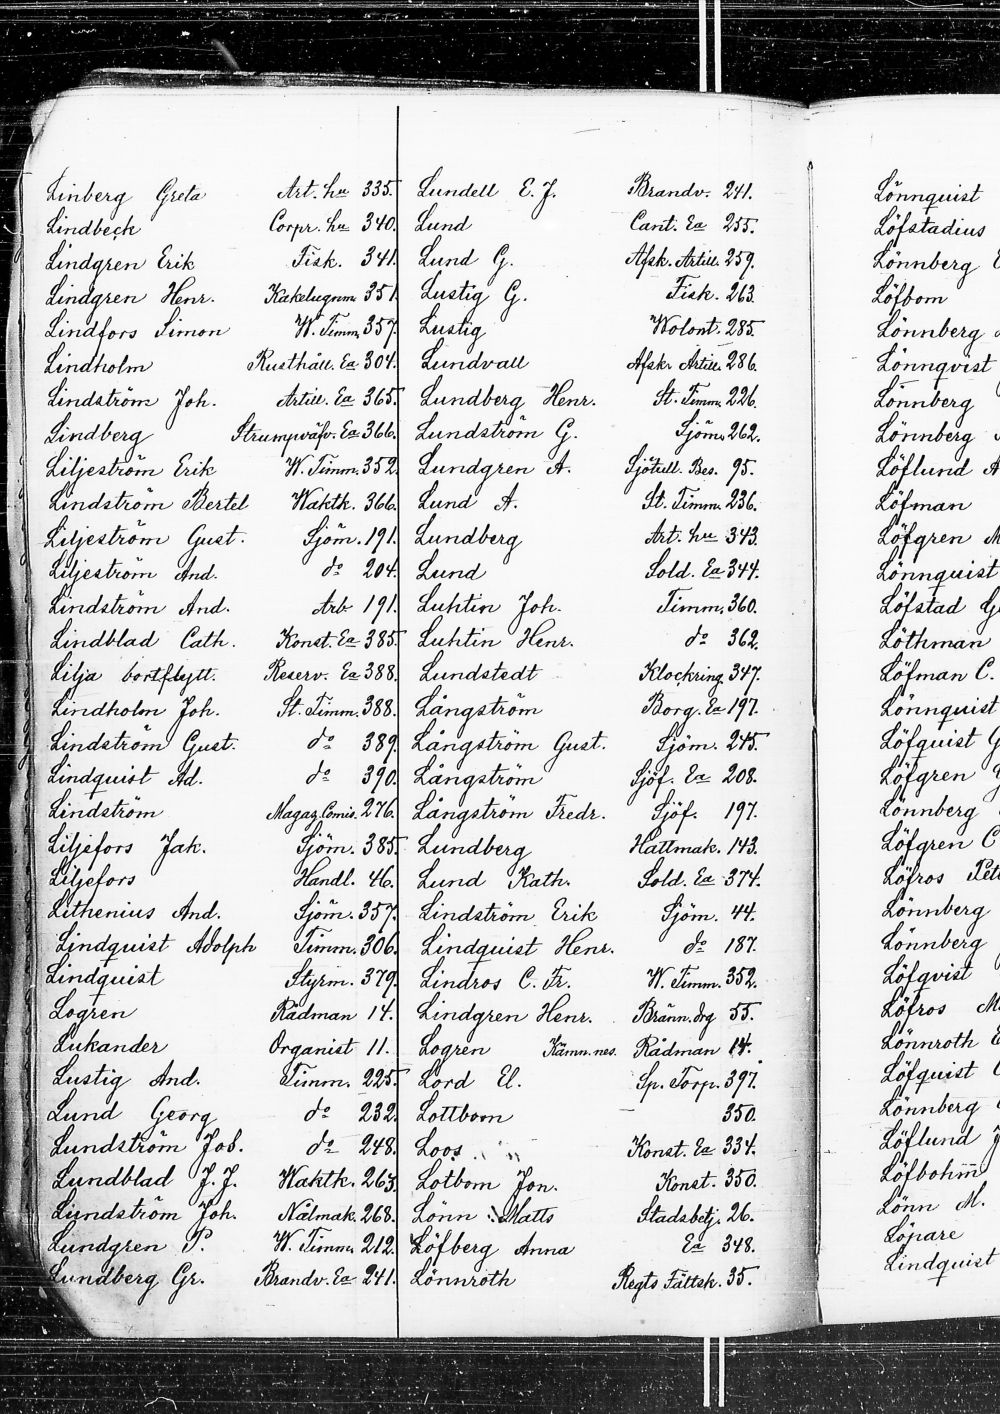 Linberg Greta Art. hu 335.
Lindbeck Corpr. hu 340.
Lindgren Erik Fisk. 341.
Lindgren Henr. Kakelugnm. 351
Lindfors Simon W. Timm. 357.
Lindholm Rusthåll. Ea 304.
Lindström Joh. Artill. Ea 365.
Lindberg Strumpväfv. Ea 366.
Liljeström Erik W. Timm. 352.
Lindström Bertel Waktk. 366.
Liljeström Gust. Sjöm. 191.
Liljeström And. do 204.
Lindström And. Arb 191.
Lindblad Cath. Konst. Ea 385.
Lilja bortflytt. Reserv. Ea 388.
Lindholm Joh. St. Timm. 388.
Lindström Gust. do 389.
Lindquist Ad. do 390.
Lindström Magaz. Comis. 276.
Liljefors Jak. Sjöm. 385.
Liljefors Handl. 46.
Lithenius And. Sjöm. 357.
Lindquist Adolph Timm. 306.
Lindquist Styrm. 379.
Logren Rådman 14.
Lukander Organist 11.
Lustig And. Timm. 225.
Lund Georg do 232.
Lundström Job. do 248.
Lundblad J. J. Waktk. 263.
Lundström Joh. Nålmak. 268.
Lundgren P. W. Timm. 212.
Lundberg Gr. Brandv. Ea 241.
Lundell E. J. Brandv. 241.
Lund Cant. Ea 255.
Lund G. Afsk. Artill. 259.
Lustig G. Fisk. 263.
Lustig Wolont. 285.
Lundvall Afsk. Artill. 286.
Lundberg Henr. St. Timm. 226.
Lundström G. Sjöm. 262.
Lundgren A. Sjötull. Bes. 95.
Lund A. St. Timm. 236.
Lundberg Art. hu 343.
Lund Sold. Ea 344.
Luhtin Joh. Timm. 360.
Luhtin Henr. do 362.
Lundstedt Klockring. 347.
Långström Borg. Ea 197.
Långström Gust. Sjöm. 245.
Långström Sjöf. Ea 208.
Långström Fredr. Sjöf. 197.
Lundberg Hattmak. 143.
Lund Kath. Sold. Ea 374.
Lindström Erik Sjöm. 44.
Lindquist Henr. do 187.
Lindros C. Fr. W. Timm. 352.
Lindgren Henr. Bränn. drg 55.
Logren Kämn. nes. Rådman 14.
Lord El. Sp. Torp. 397.
Lottbom — 350.
Loos Konst. Ea 334.
Lotbom Jon. Konst. 350.
Lönn Matts Stadsbetj. 26.
Löfberg Anna Ea 348.
Lönnroth Regts Fältsk. 35.
Lönnquist
Löfstadius
Lönnberg
Löfbom
Lönnberg
Lönnqvist
Lönnberg
Lönnberg
Löflund A
Löfman
Löfgren M
Lönnquist
Löfstad
Löthman
Löfman C.
Lönnquist
Löfquist G
Löfgren
Lönnberg
Löfgren C
Löfros Pet
Lönnberg
Lönnberg
Löfqvist
Löfros M.
Lönnroth E
Löfquist
Lönnberg
Löflund J
Löfbohm
Lönn M.
Löpare
Lindquist